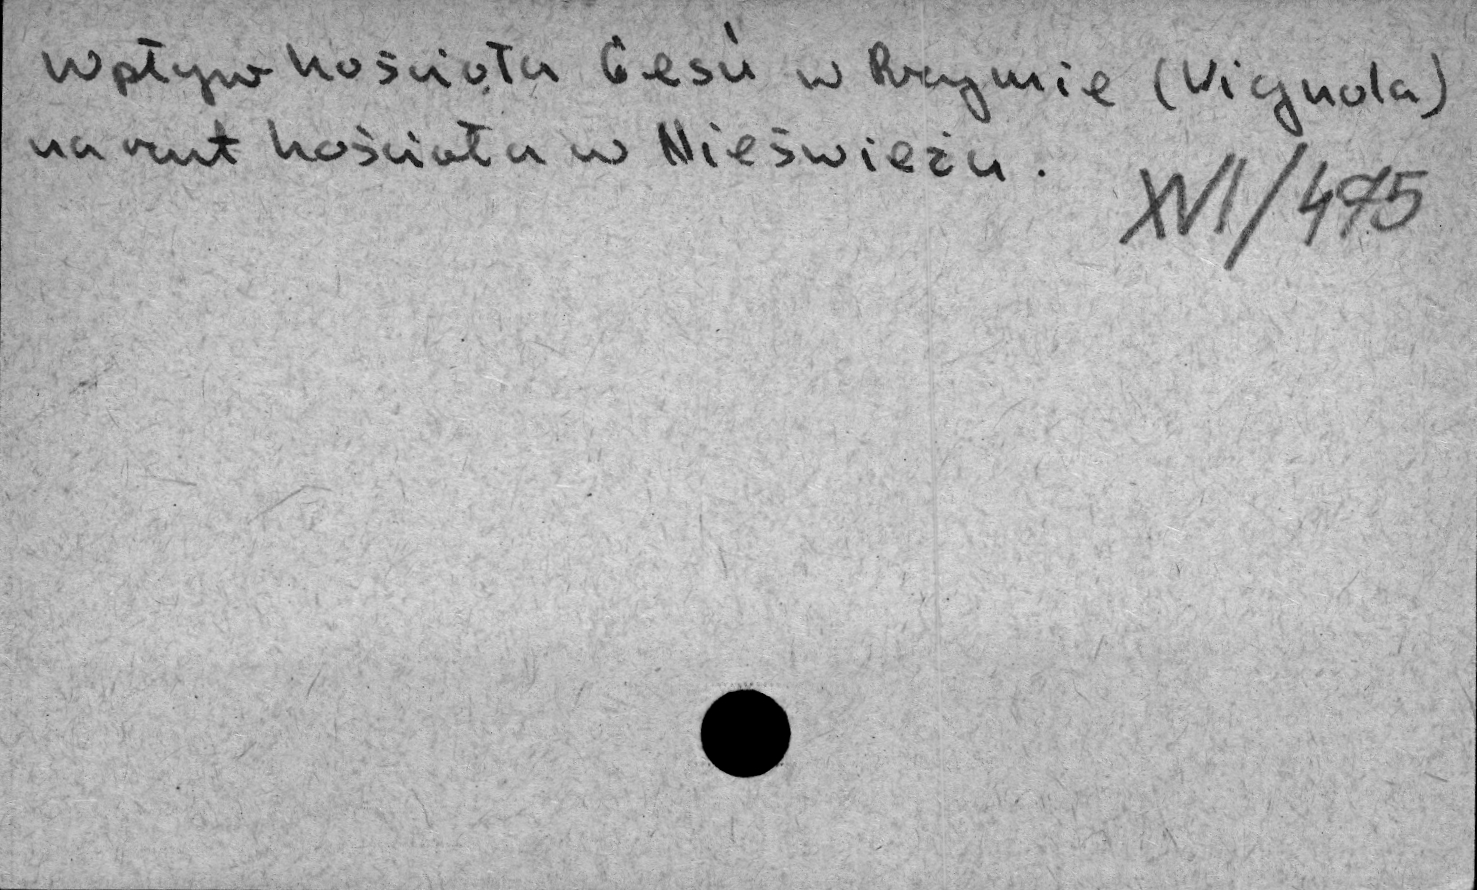 Wpływ kościoła Gesú w Rzymie (Vignola)
na rzut kościoła w Nieświeżu.
XVI/475